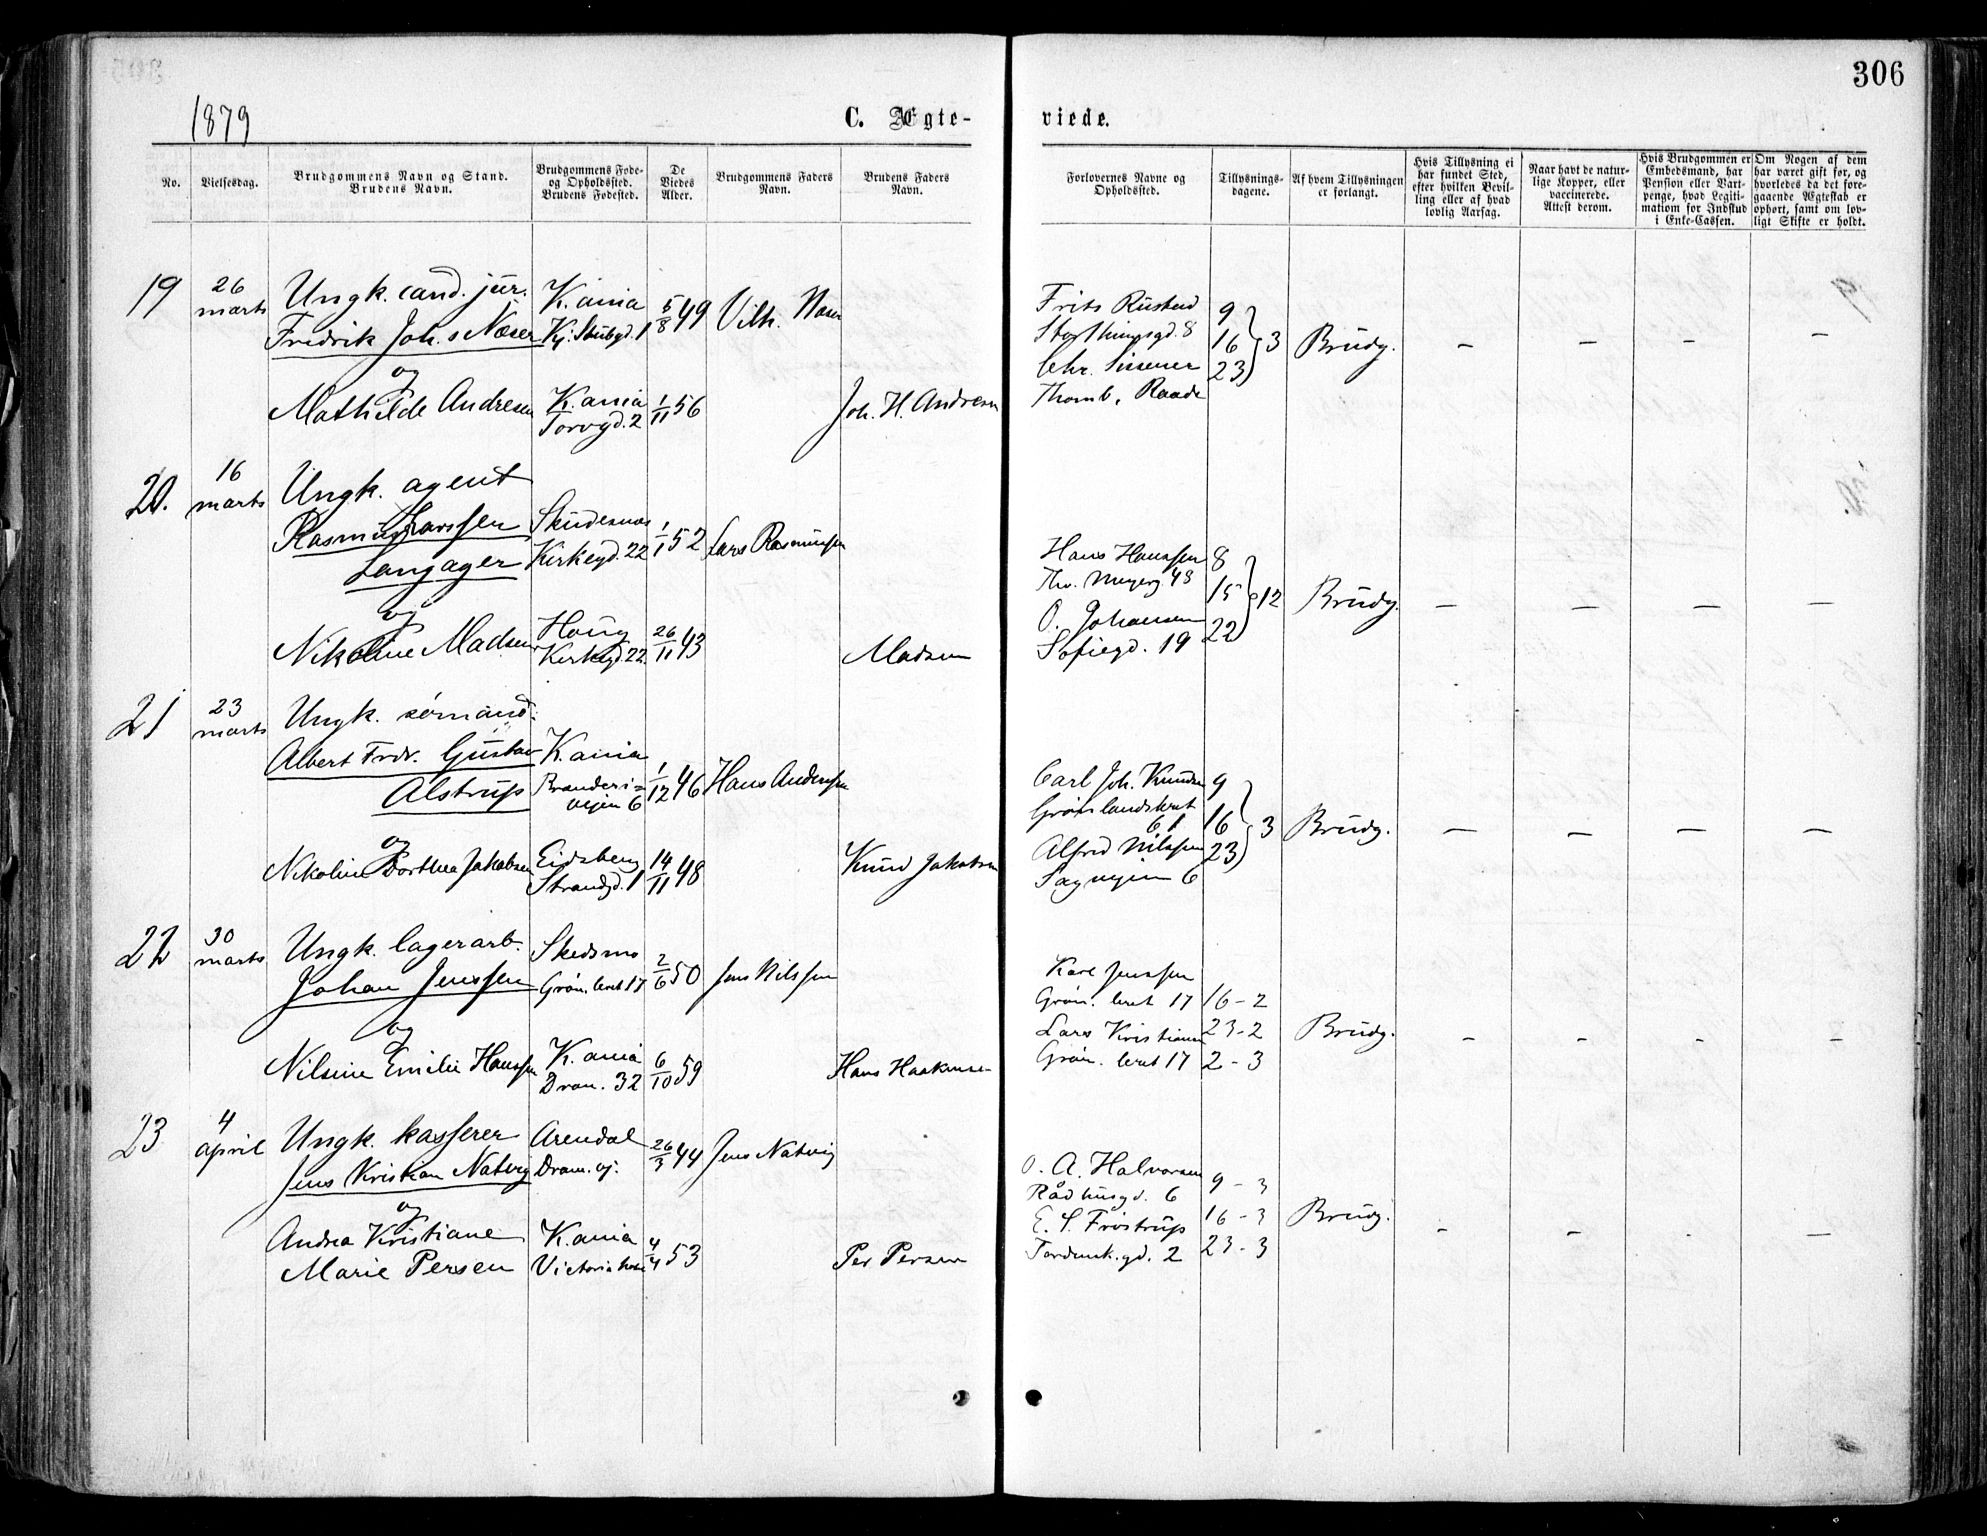 306
1879
C. Ægte-
viede.
No.
Vielsesdag.
Brudgommens Navn og Stand.
Brudens Navn.
Brudgommens Føde-
og Opholdssted.
Brudens Fødested.
De
Viedes
Alder.
Brudgommens Faders
Navn.
Brudens Faders
Navn.
Forlovernes Navne og
Opholdssted.
Tillysnings-
dagene.
Af hvem Tillysningen
er forlangt.
Hvis Tillysning ei
har fundet Sted,
efter hvilken Bevil-
ling eller af hvad
lovlig Aarsag.
Naar havt de natur-
lige Kopper, eller
vaccinerede.
Attest derom.
Hvis Brudgommen er
Embedsmand, har
Pension eller Vart-
penge, hvad Legiti-
mation for Indskud
i Enke-Cassen.
Om Nogen af dem
har været gift før, og
hvorledes da det fore-
gaaende Ægteskab er
ophørt, samt om lov-
ligt Skifte er holdt.
19
26
marts
Ungk. cand. jur.
Fredrik Joh.s Næser
og
Mathilde Andresen
K.ania
Kj. Stubgd. 1
K.ania
Torvgd. 2
5/8 49
1/11 56
Vilh. Næser
Joh. H. Andresen
Frits Rustad
Storthingsgd. 8
Chr. Sissener
Thomb. Raade
9
16 } 3
23
Brudg.
— — — —
20.
16
marts
Ungk. agent
Rasmus Larssen
Langager
og
Nikoline Madsen
Skudesnæs
Kirkegd. 22
Haug
Kirkegd. 22
1/1 52
26/11 43
Lars Rasmussen
Madsen
Hans Hanssen
Th. Meyersg 48
O. Johansen
Sofiegd. 19
8
15 } 12
22
Brudg.
— — — —
21
23
marts
Ungk. sømand
Albert Fredr. Gustav
Alstrup
og
Nikoline Dorthea Jakobsen
K.ania
vejen 6
Eidsberg
Strandgd. 1
1/12 46
14/11 48
Hans Andersen
Knud Jakobsen
Carl Joh. Knudsen
Grønlandsleret
61
Alfred Nilssen
Sagvejen 6
9
16 } 3
23
Brudg.
— — — —
22
30
marts
Ungk. lagerarb.
Johan Jenssen
og
Nilsine Emilie Hanssen
Skedsmo
Grøn. leret 17
K.ania
Dram. 32
2/6 50
6/10 59
Jens Nilssen
Hans Haakensen
Karl Jenssen
Grøn. leret 17
Lars Kristiansen
Grøn. leret 17
16 - 2
23 - 2
2 - 3
Brudg.
— — — —
23
4
april
Ungk. kasserer
Jens Kristian Natvig
og
Andrea Kristiane
Marie Persen
Arendal
Dram. vj.
K.ania
Victoria
26/3 44
4/4 53
Jens Natvig
Per Persen
O. A. Halvorsen
Rådhusgd. 6
E. S. Frøstrup
Tordensk.gd. 2
9 - 3
16 - 3
23 - 3
Brudg.
— — — —